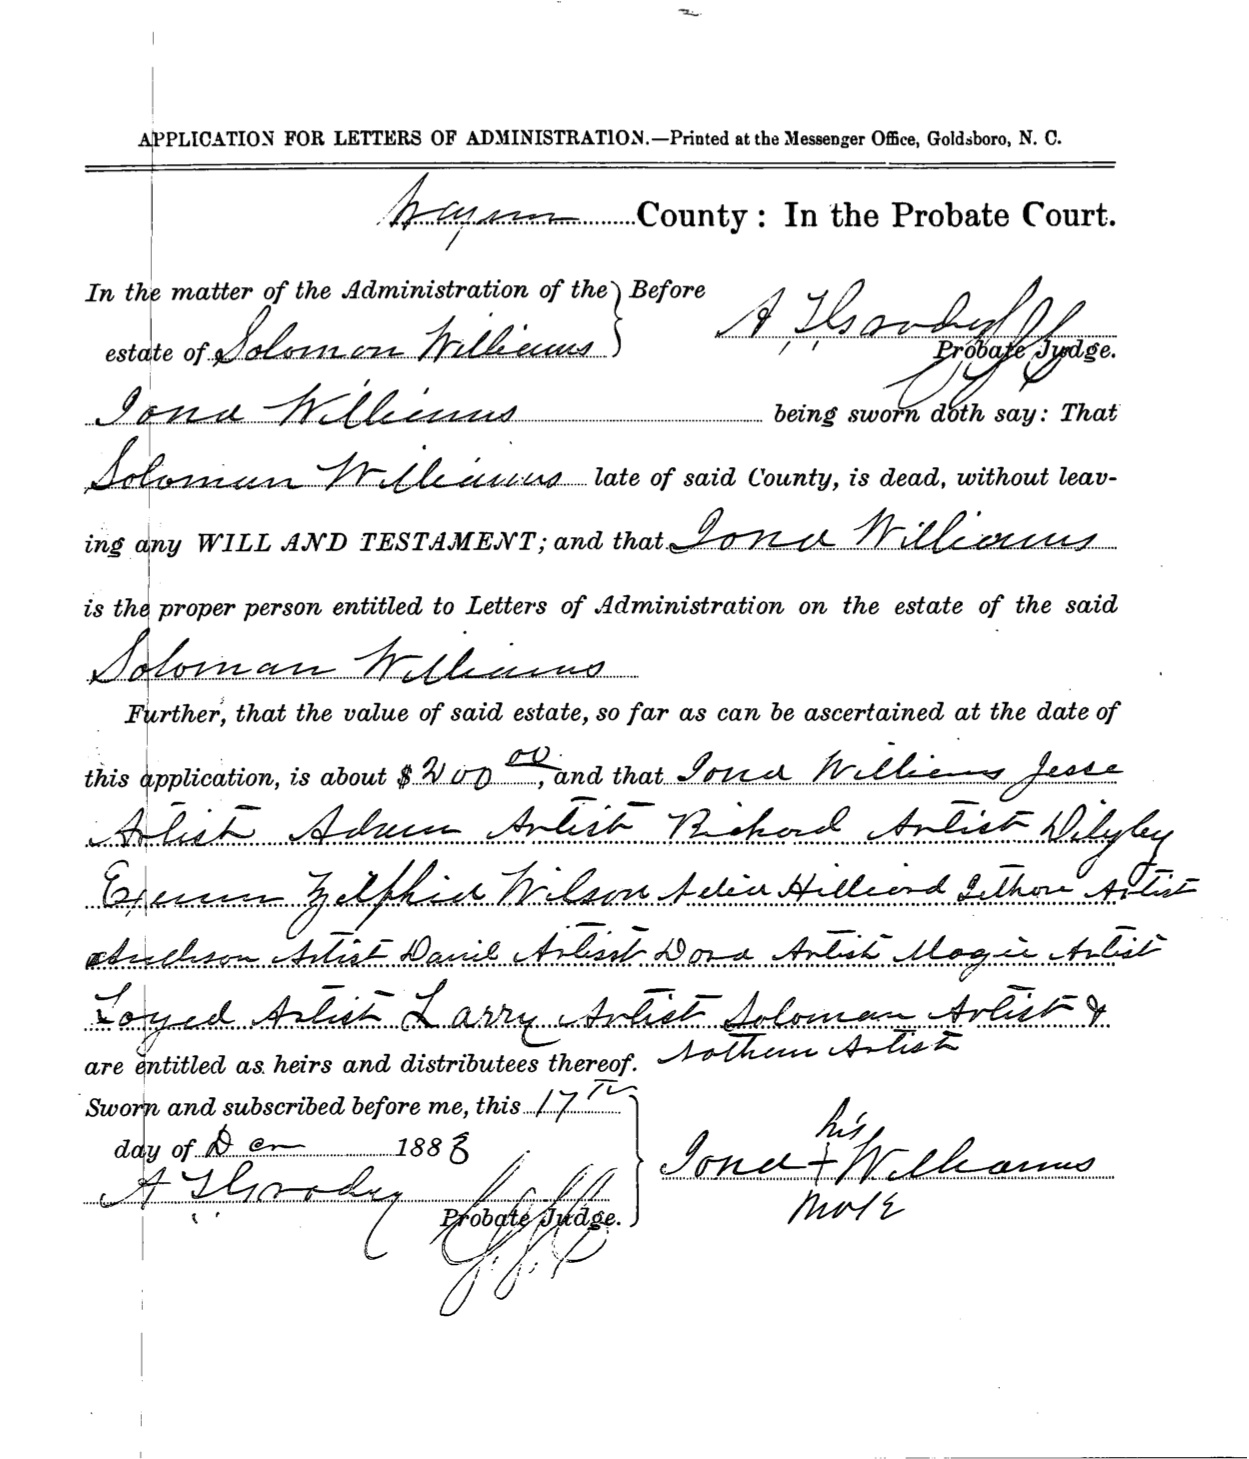 APPLICATION FOR LETTERS OF ADMINISTRATION.—Printed at the Messenger Office, Goldsboro, N. C.
Wayne County: In the Probate Court.
In the matter of the Administration of the } Before
estate of Solomon Williams } A T Grady
Probate Judge.
Jona Williams being sworn doth say: That
Soloman Williams late of said County, is dead, without leav-
ing any WILL AND TESTAMENT; and that Jona Williams
is the proper person entitled to Letters of Administration on the estate of the said
Soloman Williams
Further, that the value of said estate, so far as can be ascertained at the date of
this application, is about $ 200 00, and that Jona Williams Jesse
Artist Adam Artist Richard Artist
Exum Zilphia Wilson Hilliard Artist
Artist Artist Dora Artist Magie Artist
Loyed Artist Larry Artist Soloman Artist &
are entitled as heirs and distributees thereof. Nathan Artist
Sworn and subscribed before me, this 17 Th
day of 1883
his
A T Grady Jona + Williams
Probate Judge. mark